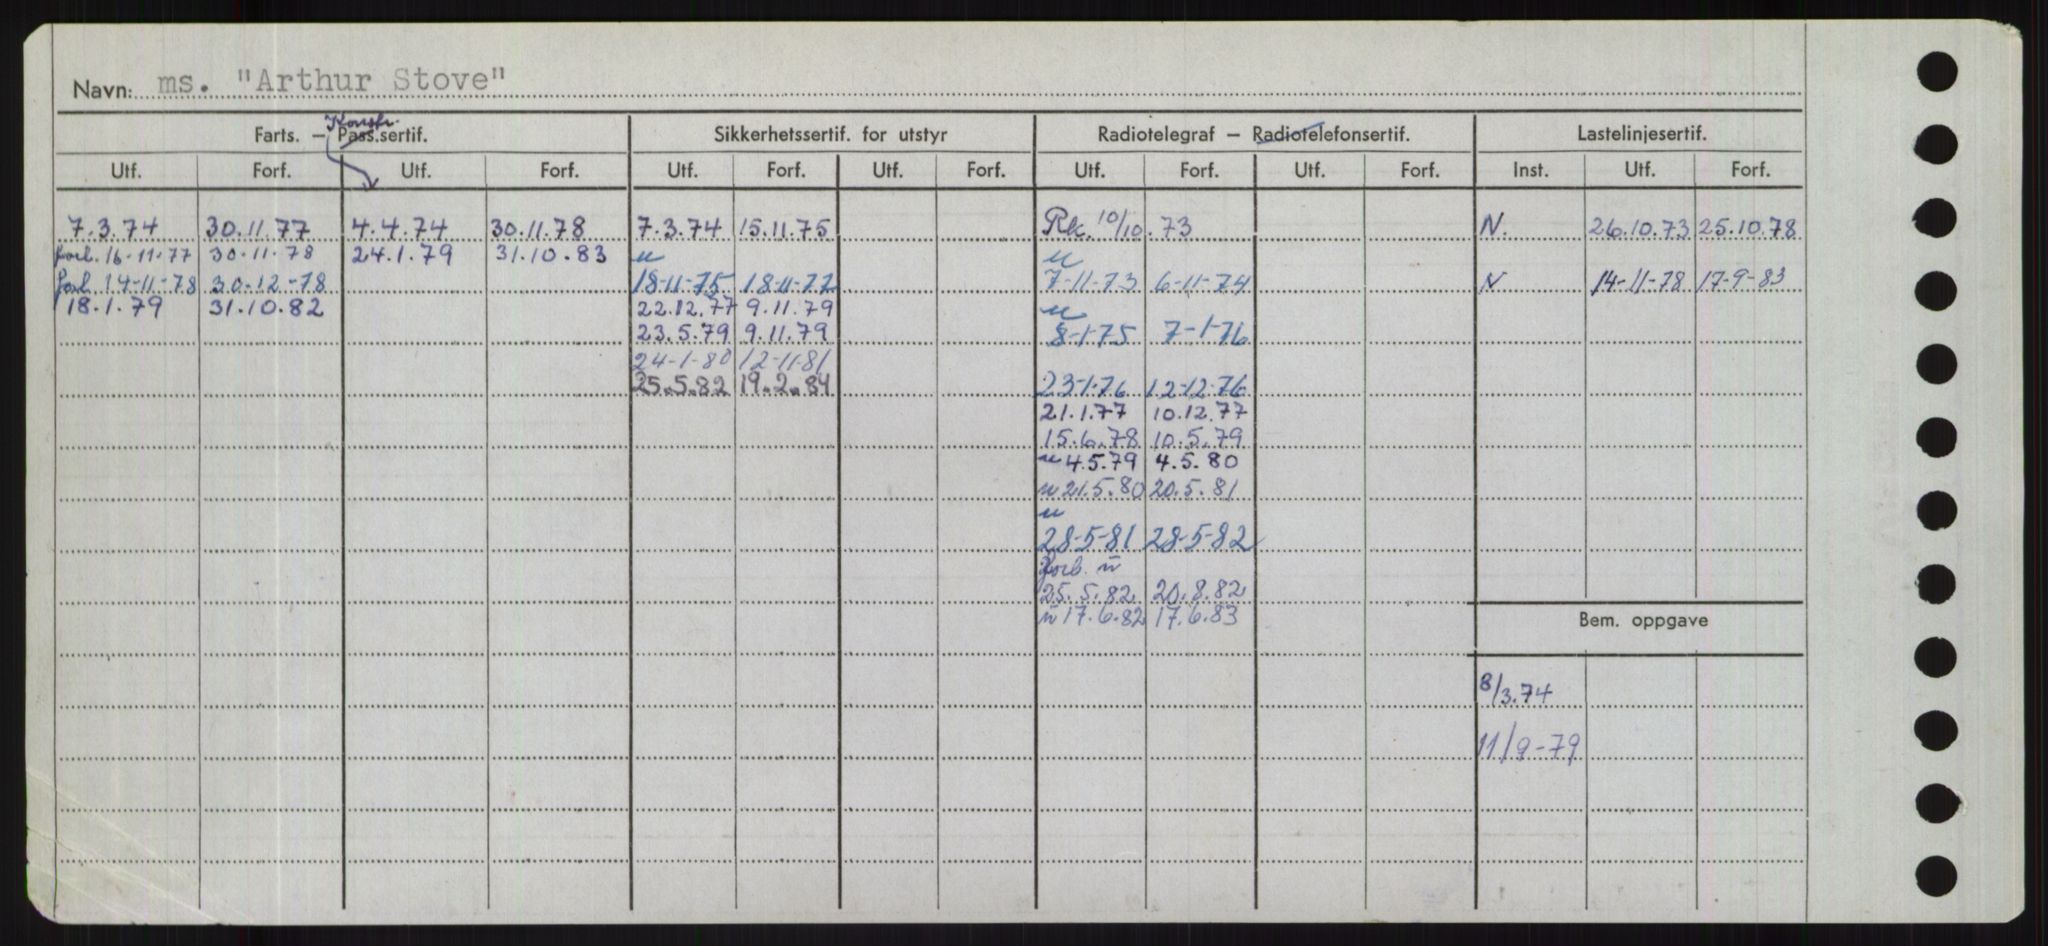 Navn: ms. "Arthur Stove"
Konstr.
Farts. – Pass.sertif. Sikkerhetssertif. for utstyr Radiotelegraf – Radiotelefonsertif. Lastelinjesertif.
Utf. Forf. Utf. Forf. Utf. Forf. Utf. Forf. Utf. Forf. Utf. Forf. Inst. Utf. Forf.
7.3.74 30.11.77 4.4.74 30.11.78 7.3.74 15.11.75 Rk. 10/10.73 N. 26.10.73 25.10.78
forl. 16-11-77 30-11-78 24.1.79 31.10.83 u u
forl. 14-11-78 30-12-78 18-11-75 18-11-77 7-11-73 6-11-74 N 14-11-78 17-9-83
18.1.79 31.10.82 22.12.77 9.11.79 u
23.5.79 9.11.79 8-1-75 7-1-76
24-1-80 12-11-81
25.5.82 19.2.84 23-1-76 12-12-76
21.1.77 10.12.77
15.6.78 10.5.79
u 4.5.79 4.5.80
u 21.5.80 20.5.81
u
28-5-81 28-5-82
forl. u
25.5.82 20.8.82
u 17.6.82 17.6.83
Bem. oppgave
8/3.74
11/9-79